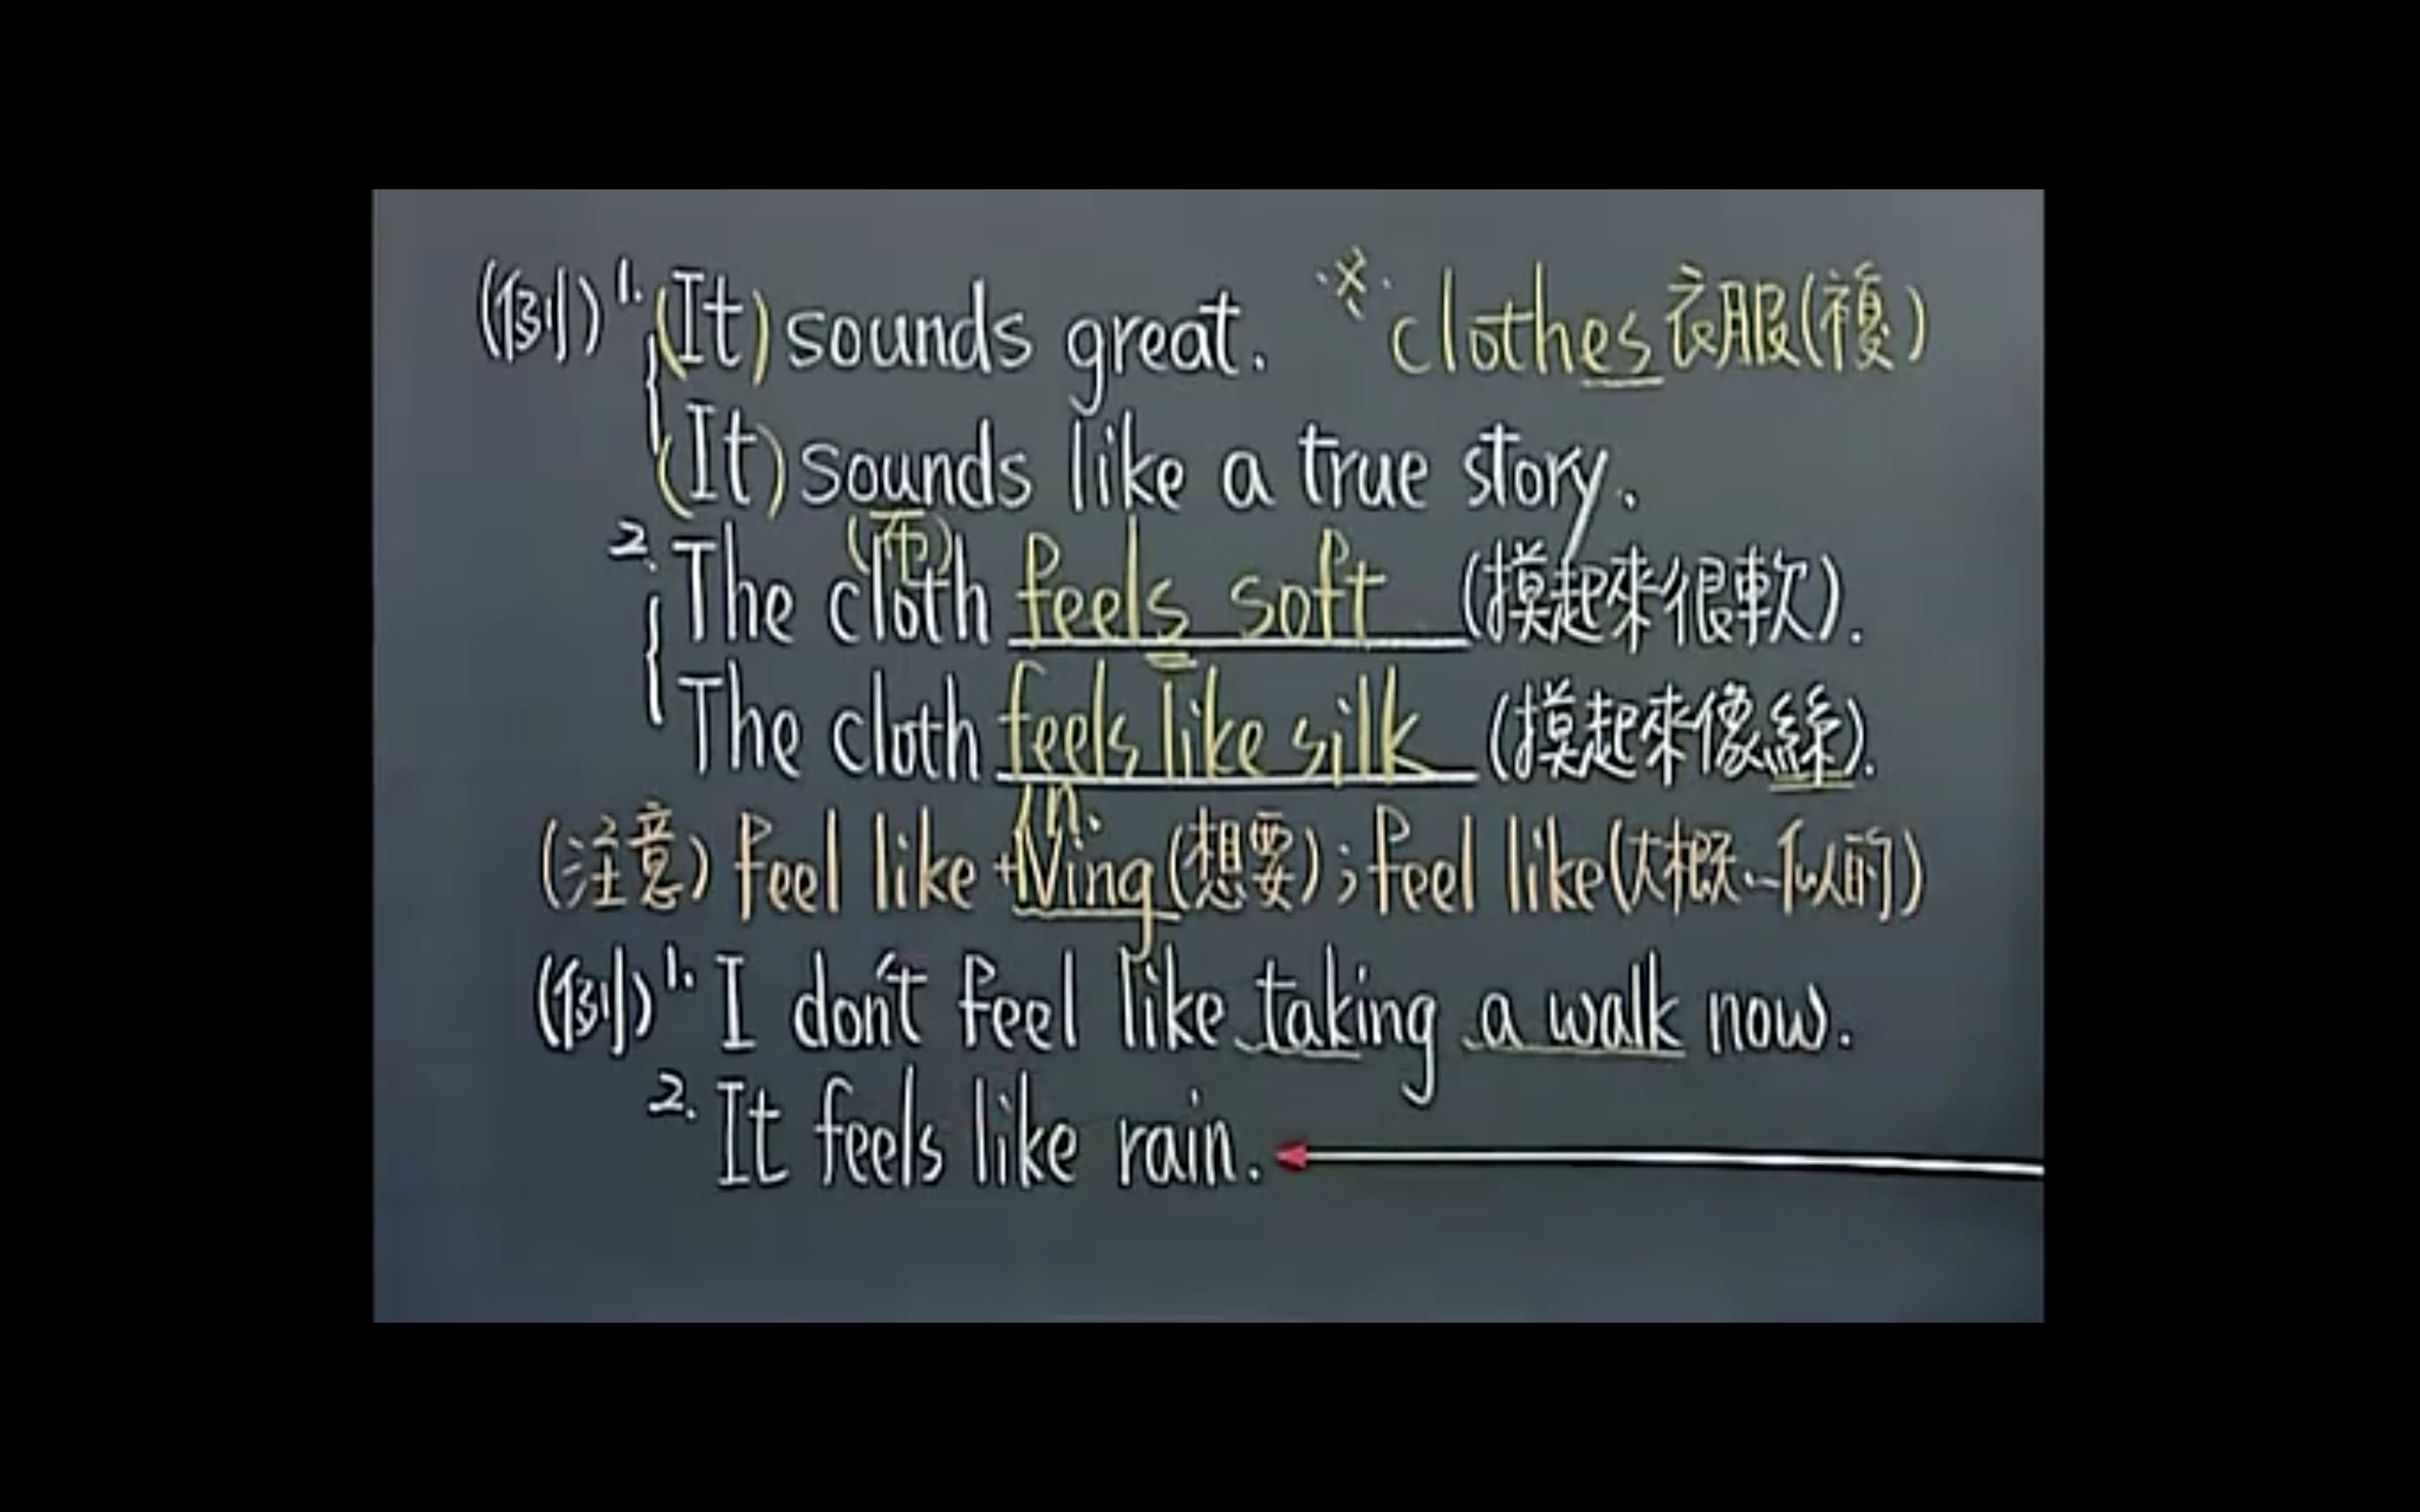 (例) 1. (It) sounds great. ※ clothes 衣服(複)
(It) sounds like a true story.
(布)
2. The cloth feels soft (摸起來很軟).
The cloth feels like silk (摸起來像絲).
/n.
(注意) feel like +Ving (想要); feel like (大概…似的)
(例) 1. I don't feel like taking a walk now.
2. It feels like rain.